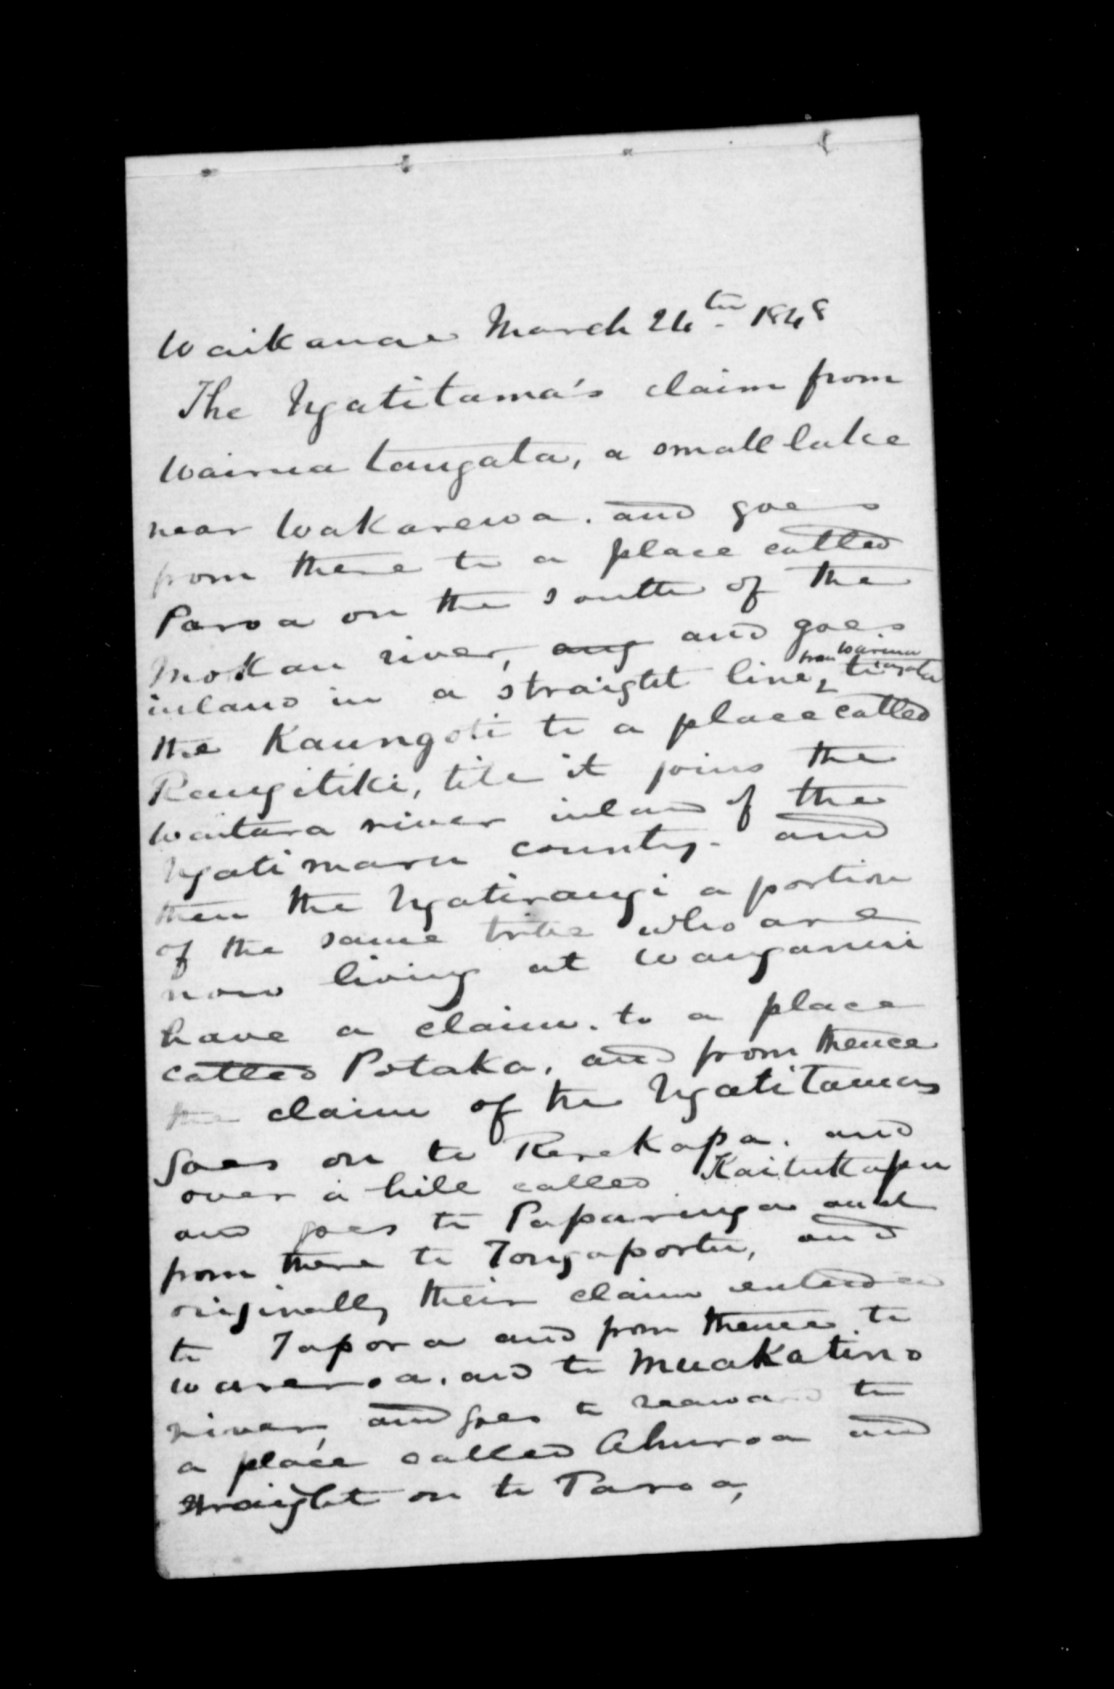 Waikanae March 24th. 1848
The Ngatitama's claim from
Wairua tangata, a small lake
near Wakarewa. and goes
from there to a place called
Paroa on the south of the
Mokau river, ang and goes
inland in a straight line, from Wairua tangata to
the Kaungoti to a place called
Rangitiki, till it joins the
Waitara river inland of the
Ngatimaru country. and
then the Ngatirangi a portion
of the same tribe who are
now living at Wanganui
have a claim. to a place
called Potaka, and from thence
the claim of the Ngatitamas
goes on to Rerekapa. and
over a hill called Kaitukapu
and goes to Paparinga and
from there to Tongaportu, and
originally their claim
to Tapora and from thence to
Wareroa. and to Muakatino
river, and goes to seaward to
a place called Ahuroa and
straight on to Paroa,